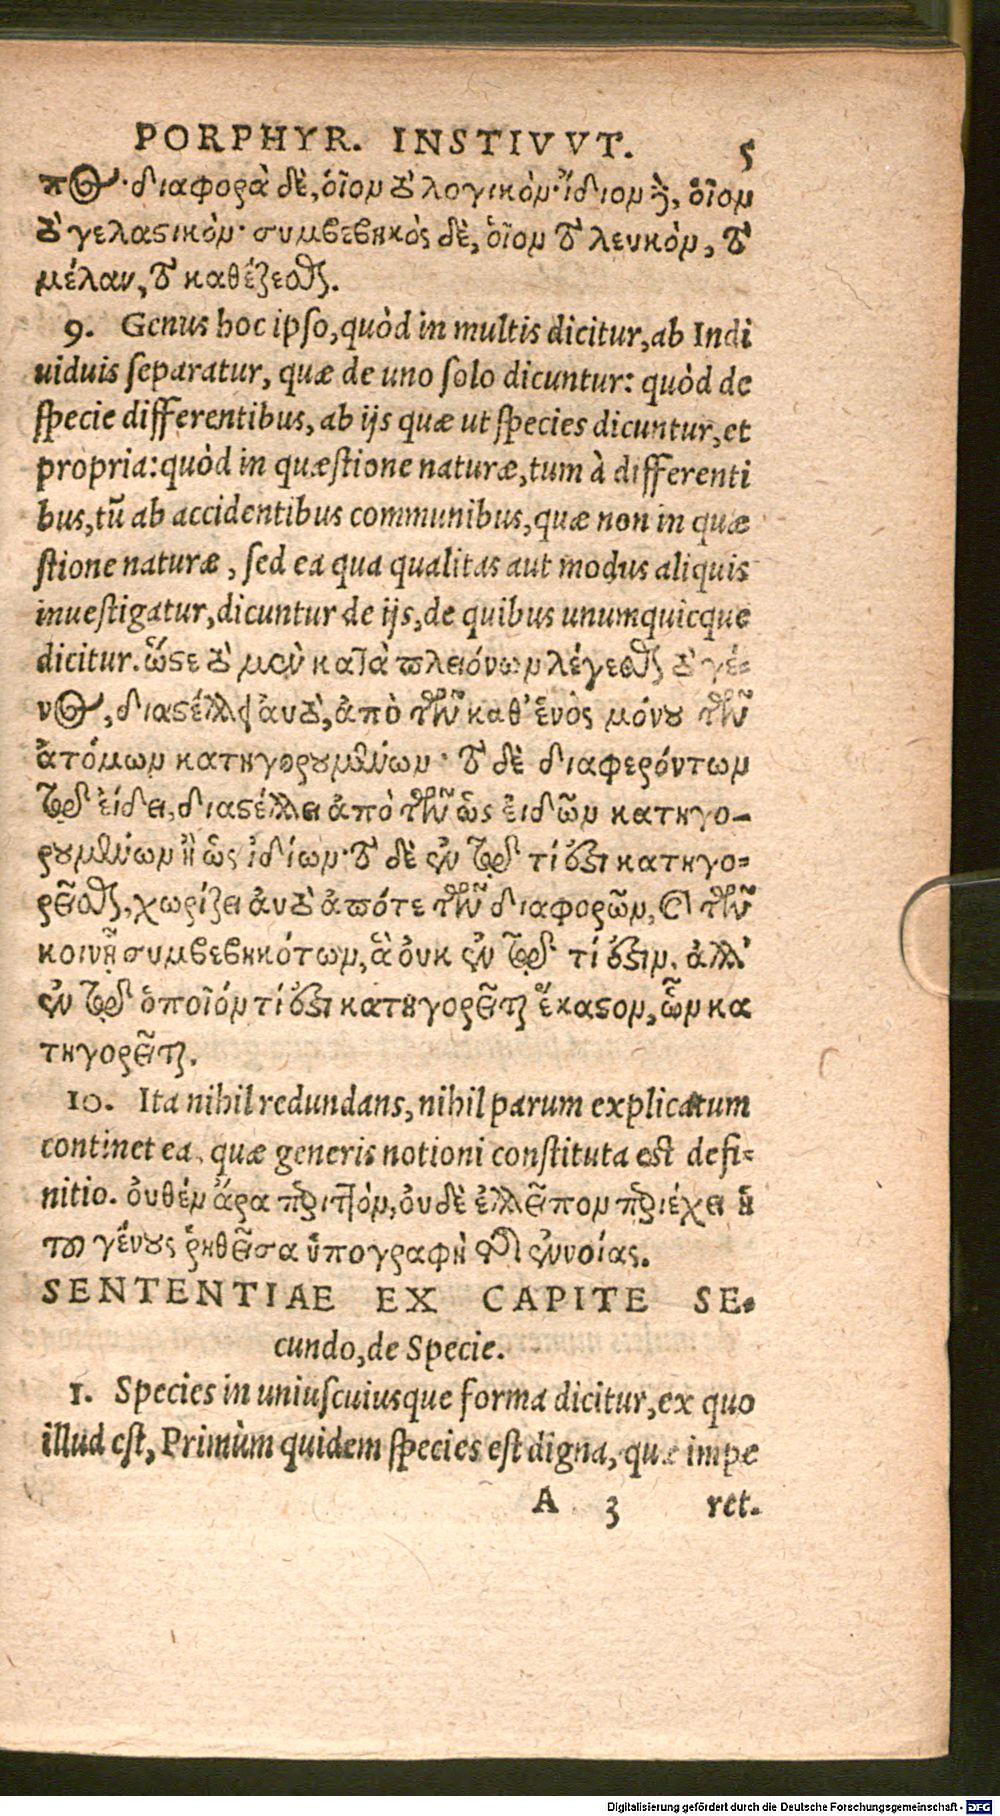 PORPHYR. INSTIVVT. 5
πος· διαφορὰ δὲ, ὁῖον τὸ λογικὸν· ἴδιον δὲ, ὁῖον
τὸ γελαστικὸν· συμβεβηκὸς δὲ, ὁῖον τὸ λευκὸν, τὸ
μέλαν, τὸ καθέζεσθαι.
9. Genus hoc ipso, quòd in multis dicitur, ab Indi
uiduis separatur, quæ de uno solo dicuntur: quòd de
specie differentibus, ab ijs quæ ut species dicuntur, et
propria: quòd in quæstione naturæ, tum à differenti
bus, tũ ab accidentibus communibus, quæ non in quæ
stione naturæ, sed ea qua qualitas aut modus aliquis
inuestigatur, dicuntur de ijs, de quibus unumquicque
dicitur. ὥστε τὸ μὲν κατὰ πλειόνων λέγεσθαι τὸ γέ-
νος, διαστέλλει αὐτὸ, ἀπὸ τῶν καθ' ἑνὸς μόνου τῶν
ἀτόμων κατηγορουμένων· τὸ δὲ διαφερόντων
τῷ εἴδει, διαστέλλει ἀπὸ τῶν ὡς εἰδῶν κατηγο-
ρουμένων ἢ ὡς ἰδίων· τὸ δὲ ἐν τῷ τί ἐστι κατηγο-
ρεῖσθαι, χωρίζει αὐτὸ ἀπό τε τῶν διαφορῶν, καὶ τῶν
κοινῇ συμβεβηκότων, ἃ οὐκ ἐν τῷ τί ἐστιν, ἀλλ'
ἐν τῷ ὁποῖόν τί ἐστι κατηγορεῖται ἕκαστον, ὧν κα
τηγορεῖται.
10. Ita nihil redundans, nihil parum explicatum
continet ea, quæ generis notioni constituta est defi-
nitio. οὐθὲν ἄρα περιττὸν, οὐδὲ ἐλλεῖπον περιέχει ἡ
τοῦ γένους ῥηθεῖσα ὑπογραφὴ τῆς ἐννοίας.
SENTENTIAE EX CAPITE SE-
cundo, de Specie.
1. Species in uniuscuiusque forma dicitur, ex quo
illud est, Primùm quidem species est digna, quæ impe
A 3 ret.
Digitalisierung gefördert durch die Deutsche Forschungsgemeinschaft - DFG